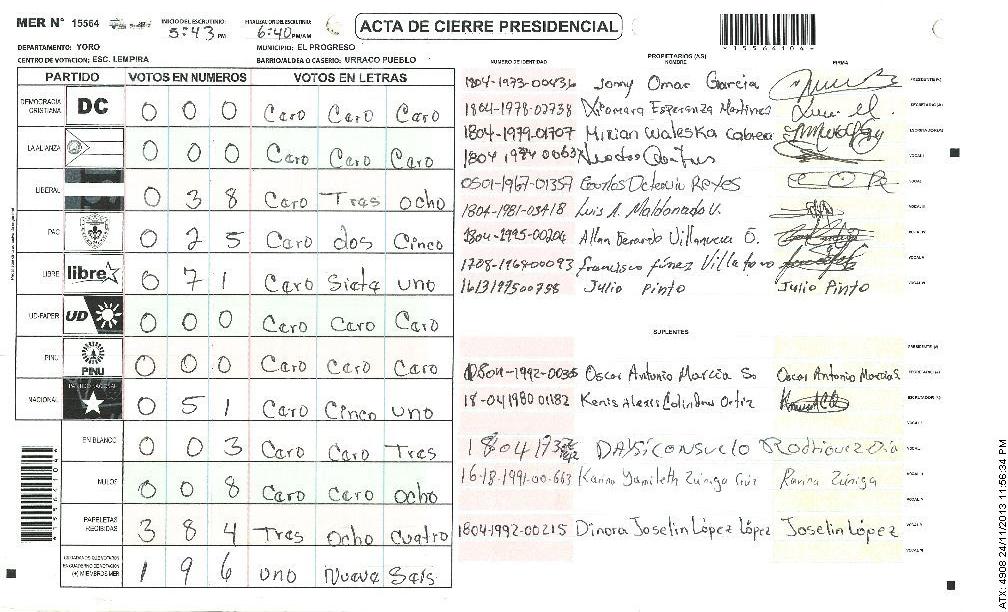 MER N° 15564
INICIO DEL ESCRUTINIO: 5:43 PM
FINALIZACION DEL ESCRUTINIO: 6:40 PM/AM
ACTA DE CIERRE PRESIDENCIAL
DEPARTAMENTO: YORO
MUNICIPIO: EL PROGRESO
CENTRO DE VOTACION: ESC. LEMPIRA
BARRIO/ALDEA O CASERIO: URRACO PUEBLO
PARTIDO VOTOS EN NUMEROS VOTOS EN LETRAS
DEMOCRACIA CRISTIANA DC 0 0 0 Caro Caro Caro
LA ALIANZA 0 0 0 Caro Caro Caro
LIBERAL 0 3 8 Caro Tras ocho
PAC 0 2 5 Caro dos Cinco
LIBRE libre 0 7 1 Caro Siata uno
UD-FAPER UD 0 0 0 Caro Caro Caro
PINU PINU 0 0 0 Caro Caro Caro
NACIONAL PARTIDO NACIONAL 0 5 1 Caro Cinco uno
EN BLANCO 0 0 3 Caro Caro Tras
NULOS 0 0 8 Caro Caro ocho
PAPELETAS RECIBIDAS 3 8 4 Tras Ocho Cuatro
(+) MIEMBROS MER 1 9 6 uno Nueva Sais
PROPIETARIOS (AS)
NUMERO DE IDENTIDAD NOMBRE FIRMA
1804-1973-00436 Jonny Omar Garcia
1804-1978-02738 Xiomara Esperanza Martinez
1804-1979-01707 Mirian Waleska Cabrera
0501-1967-01357 Reyes
1804-1981-03418 Luis A. Maldonado V.
1804-1995-00204 Allan Gerardo Villanueva O.
1708-1968-00093 Francisco Funez Villatoro
1613197500758 Julio Pinto Julio Pinto
SUPLENTES
1804-1992-0035 Oscar Antonio Marcia S. Oscar Antonio Marcia S.
18-04 1980 01182 Kenis Alexis Colindres Ortiz
Rodriguez
16-18-1991-00-663 Karina Yamileth Zúniga Karina Zúniga
1804-1992-00215 Dinora Joselin López López Joselin López
ATX: 4908 24/11/2013 11:56:34 PM